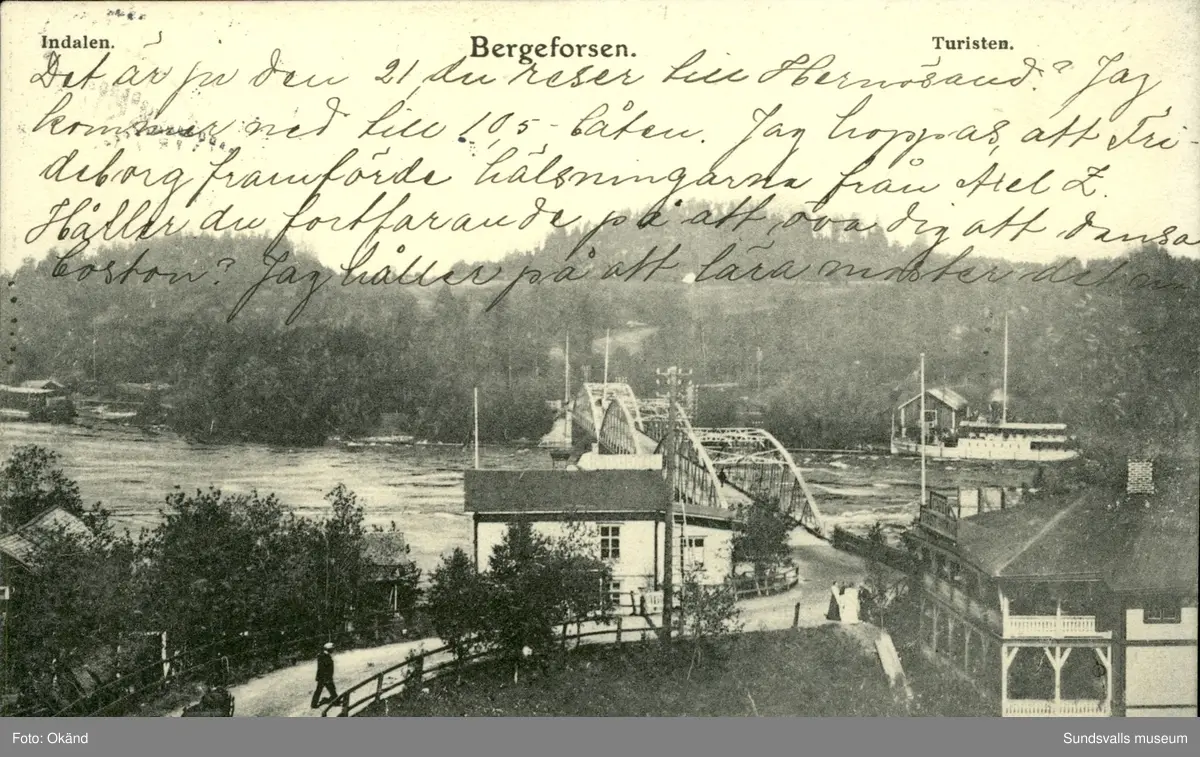 Indalen. Bergeforsen. Turisten.
Det är ju den 21 du reser till Hernösand? Jag
kommer ned till 105-båten. Jag hoppas, att Fri-
deborg framförde hälsningarna från Axel Z.
Håller du fortfarande på att öva dig att dansa
boston? Jag håller på att lära moster det
Foto: Okänd Sundsvalls museum